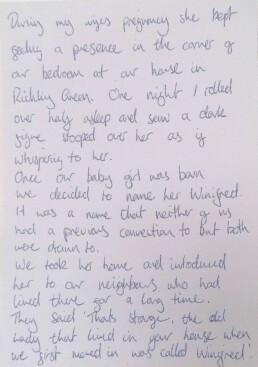 During my wifes pregnancy she kept
feeling a presence in the corner of
our bedroom at our house in
Rickling Green. One night I rolled
over half asleep and saw a dark
figure stooped over her as if
whispering to her.
Once our baby girl was born
we decided to name her Winifred.
It was a name that neither of us
had a previous connection to but both
were drawn to.
We took her home and introduced
her to our neighbours who had
lived there for a long time.
They said 'Thats strange, the old
lady that lived in your house when
we first moved in was called Winifred'.